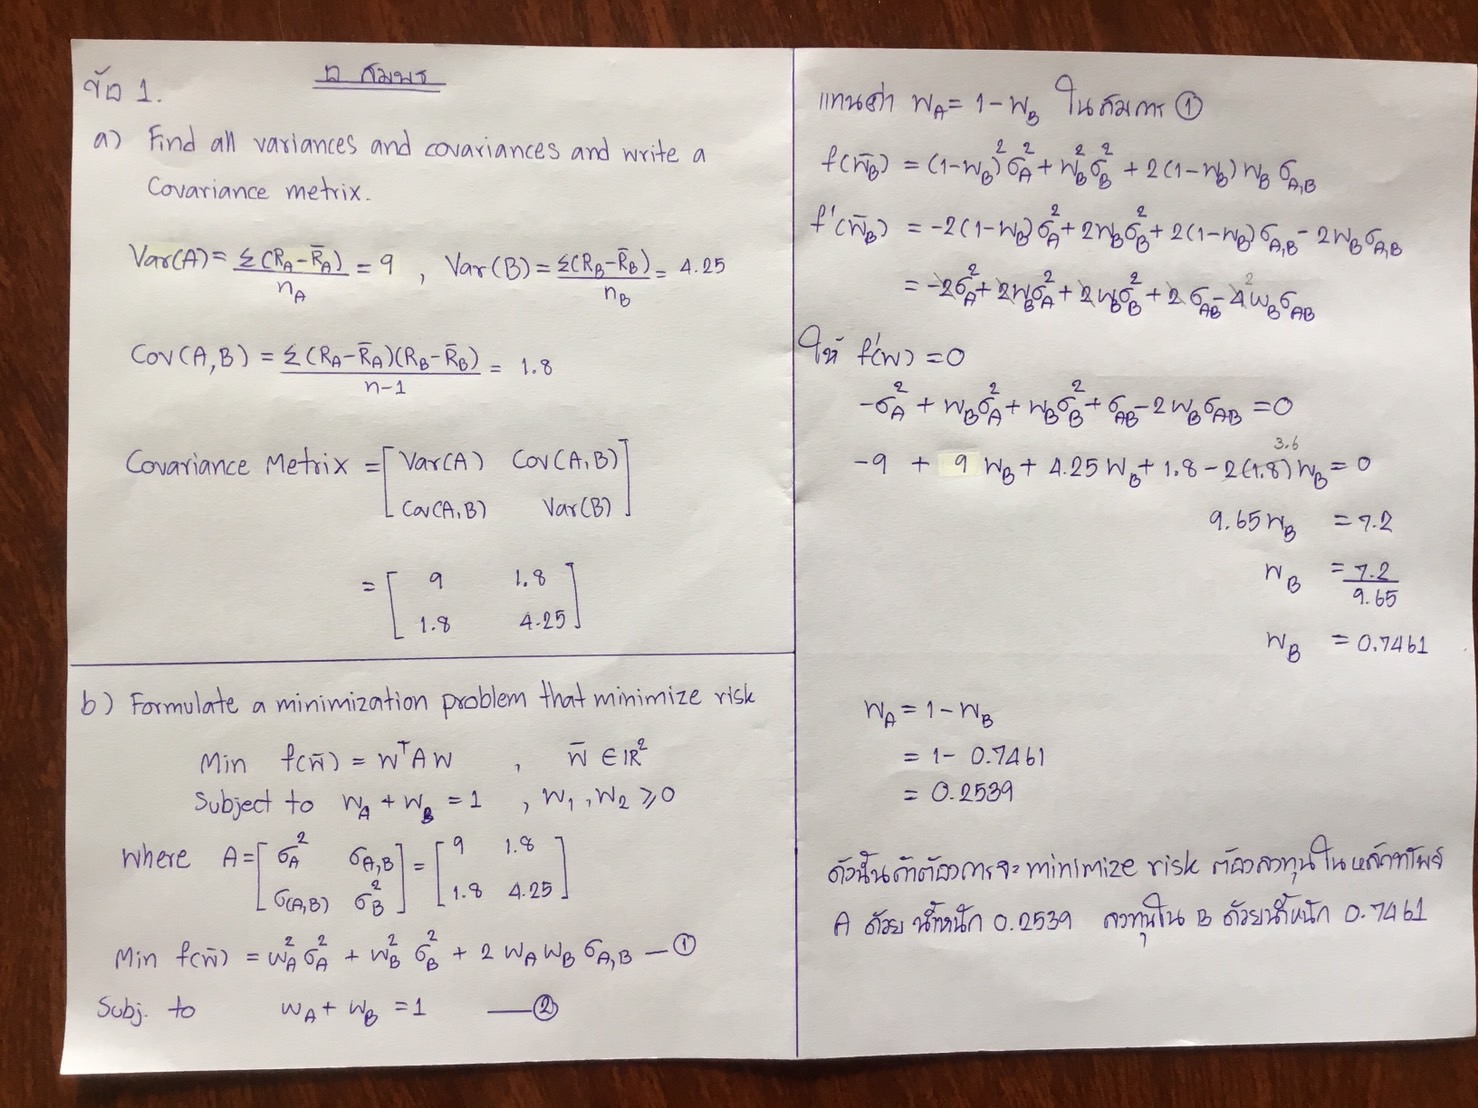 ข้อ 1.
a) Find all variances and covariances and write a
Covariance metrix.
Var(A) = Σ(R_A - R̄_A) / n_A = 9 , Var(B) = Σ(R_B - R̄_B) / n_B = 4.25
Cov(A,B) = Σ(R_A - R̄_A)(R_B - R̄_B) / n-1 = 1.8
Covariance Metrix = [ Var(A) Cov(A,B)
Cov(A,B) Var(B) ]
= [ 9 1.8
1.8 4.25 ]
b) Formulate a minimization problem that minimize risk
Min f(w̄) = W^T A W , w̄ ∈ IR²
Subject to W_A + W_B = 1 , W₁ , W₂ ⩾ 0
where A = [ σ_A² σ_A,B
σ(A,B) σ_B² ] = [ 9 1.8
1.8 4.25 ]
Min f(w̄) = W_A² σ_A² + W_B² σ_B² + 2 W_A W_B σ_A,B — ①
Subj. to W_A + W_B = 1 — ②
แทนค่า W_A = 1 - W_B ในสมการ ①
f(w̄_B) = (1-W_B)² σ_A² + W_B² σ_B² + 2(1-W_B) W_B σ_A,B
f'(w̄_B) = -2(1-W_B) σ_A² + 2W_B σ_B² + 2(1-W_B) σ_A,B - 2W_B σ_A,B
= -2σ_A² + 2W_B σ_A² + 2W_B σ_B² + 2σ_AB - 4 2 W_B σ_AB
ให้ f'(w) = 0
-σ_A² + W_B σ_A² + W_B σ_B² + σ_AB - 2W_B σ_AB = 0
3.6
-9 + 9 W_B + 4.25 W_B + 1.8 - 2(1.8) W_B = 0
9.65 W_B = 7.2
W_B = 7.2 / 9.65
W_B = 0.7461
W_A = 1 - W_B
= 1 - 0.7461
= 0.2539
ดังนั้นถ้าต้องการจะ minimize risk ต้องลงทุนใน หลักทรัพย์
A ด้วย น้ำหนัก 0.2539 ลงทุนใน B ด้วยน้ำหนัก 0.7461